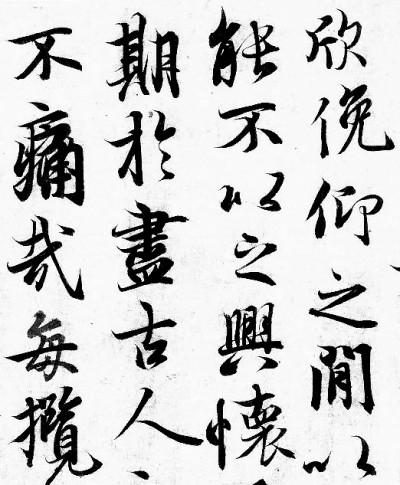 欣俛仰之閒以
能不以之興懷
期於盡古人
不痛哉每攬